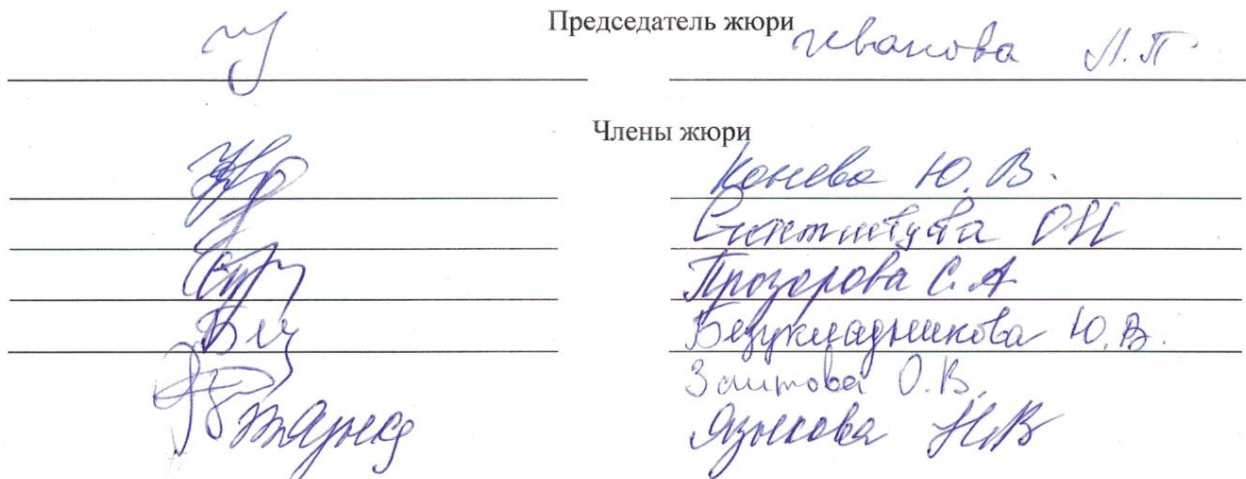 Председатель жюри
Иванова Л.П
Члены жюри
Конева Ю.В.
О.Н
Прозорова С.А
Безукладникова Ю.В.
Заитова О.В.
Языкова Н.В